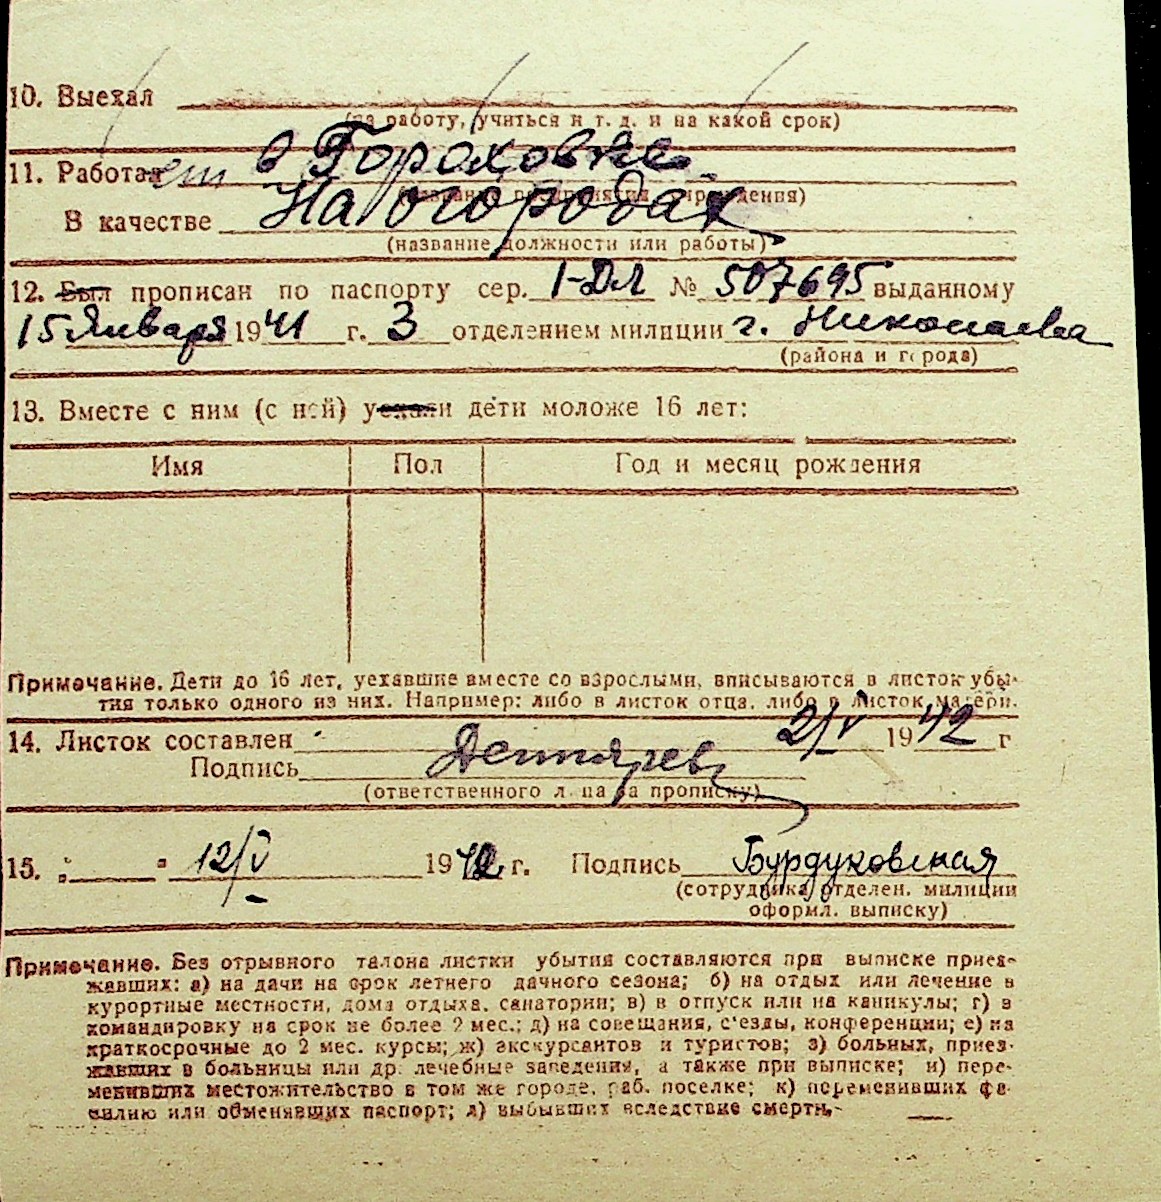 10. Выехал
(на работу, учиться и т. д. и на какой срок)
11. Работает в Гороховке
(название предприятия, учреждения)
На огородах
В качестве
(название должности или работы)
12. Был прописан по паспорту сер. I-ДЛ № 507695 выданному
15 Января 1941 г. 3 отделением милиции г. Николаева
(района и города)
13. Вместе с ним (с ней) уехали дети моложе 16 лет:
Имя Пол Год и месяц рождения
Примечание. Дети до 16 лет, уехавшие вместе со взрослыми, вписываются в листок убы-
тия только одного из них. Например: либо в листок отца, либо в листок матери.
14. Листок составлен 2/V 1942 г
Подпись Дегтярев
(ответственного лица за прописку)
15. „ " 12/V 1942 г. Подпись Бурдуковская
(сотрудника отделен. милиции
оформл. выписку)
Примечание. Без отрывного талона листки убытия составляются при выписке приез-
жавших: а) на дачи на срок летнего дачного сезона; б) на отдых или лечение в
курортные местности, дома отдыха, санатории; в) в отпуск или на каникулы; г) в
командировку на срок не более 2 мес.; д) на совещания, с'езды, конференции; е) на
краткосрочные до 2 мес. курсы; ж) экскурсантов и туристов; з) больных, приез-
жавших в больницы или др. лечебные заведения, а также при выписке; и) пере-
менивших местожительство в том же городе, раб. поселке; к) переменивших фа-
милию или обменявших паспорт; л) выбывших вследствие смерти.